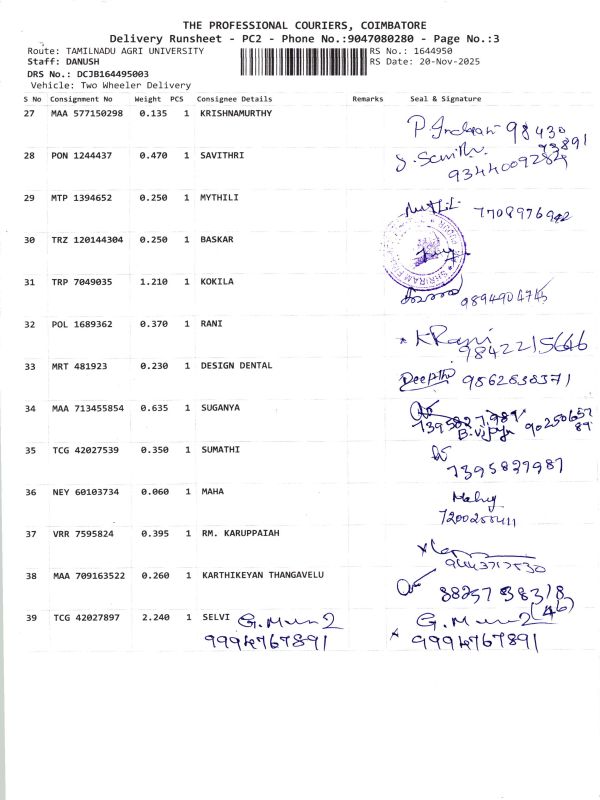 THE PROFESSIONAL COURIERS, COIMBATORE
Delivery Runsheet - PC2 - Phone No.:9047080280 - Page No.:3
Route: TAMILNADU AGRI UNIVERSITY RS No.: 1644950
Staff: DANUSH RS Date: 20-Nov-2025
DRS No.: DCJB164495003
Vehicle: Two Wheeler Delivery
S No Consignment No Weight PCS Consignee Details Remarks Seal & Signature
27 MAA 577150298 0.135 1 KRISHNAMURTHY
98430
73891
28 PON 1244437 0.470 1 SAVITHRI
9344009284
29 MTP 1394652 0.250 1 MYTHILI
7708976942
30 TRZ 120144304 0.250 1 BASKAR
31 TRP 7049035 1.210 1 KOKILA
9894904745
32 POL 1689362 0.370 1 RANI K Rani
9842215646
33 MRT 481923 0.230 1 DESIGN DENTAL Deepthi 9862838371
34 MAA 713455854 0.635 1 SUGANYA
B. Vijaya
35 TCG 42027539 0.350 1 SUMATHI
7395827987
36 NEY 60103734 0.060 1 MAHA
7200255411
37 VRR 7595824 0.395 1 RM. KARUPPAIAH
9443717530
38 MAA 709163522 0.260 1 KARTHIKEYAN THANGAVELU 88257 38318
(46)
39 TCG 42027897 2.240 1 SELVI
9994767891 9994767891